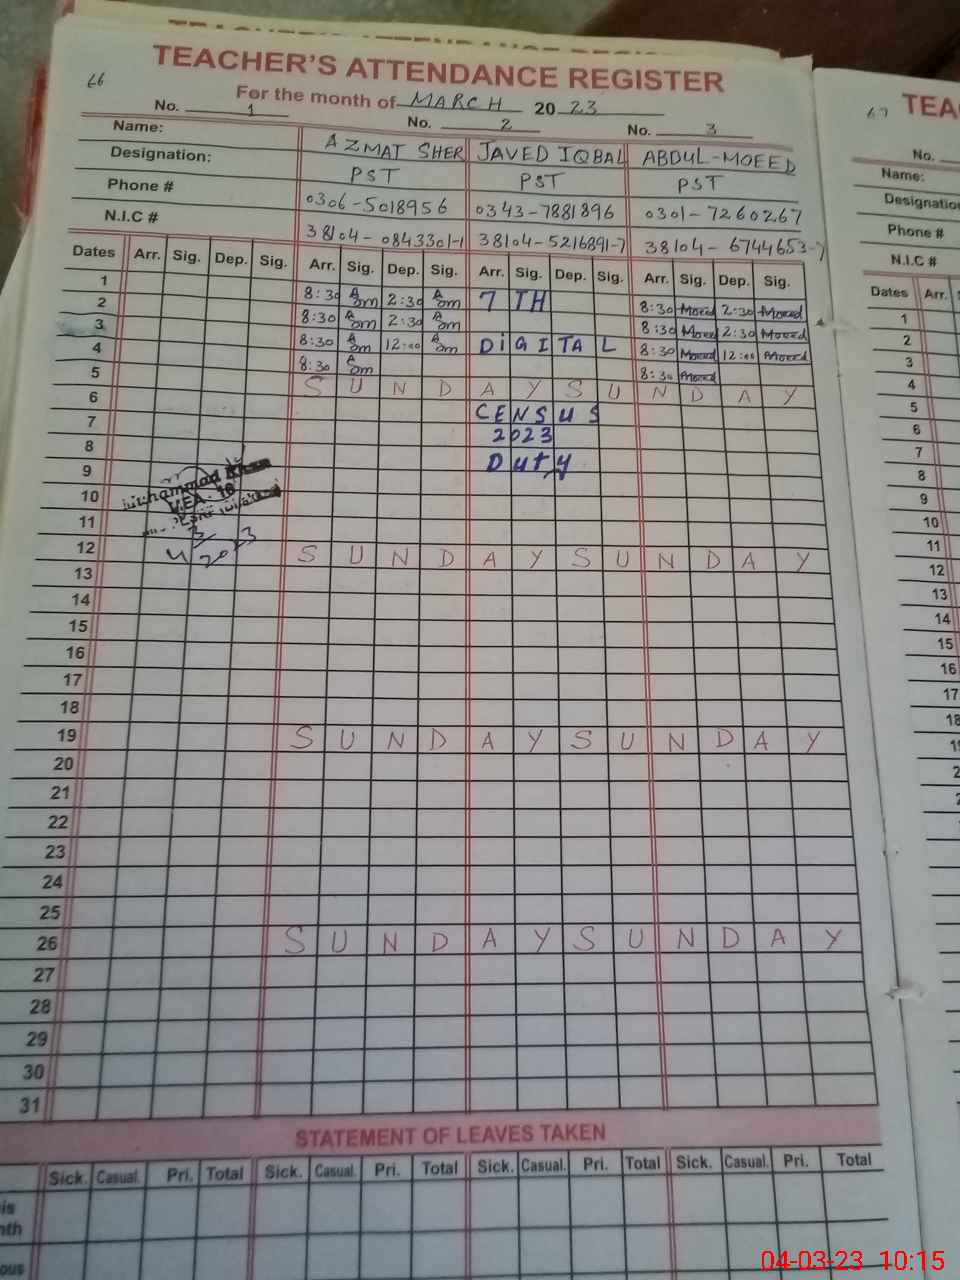 TEACHER'S ATTENDANCE REGISTER
66
For the month of MARCH 2023
No. 1 No. 2 No. 3
Name: AZMAT SHER JAVED IQBAL ABDUL-MOEED
Designation: PST PST PST
Phone # 0306-5018956 0343-7881896 0301-7260267
N.I.C # 38104-0843301-1 38104-5216891-7 38104-6744653-7
Dates Arr. Sig. Dep. Sig. Arr. Sig. Dep. Sig. Arr. Sig. Dep. Sig. Arr. Sig. Dep. Sig.
1 8:30 2:30 7 TH 8:30 Moeed 2:30 Moeed
2 8:30 2:30 8:30 Moeed 2:30 Moeed
3 8:30 12:00 DiGITAL 8:30 Moeed 12:00 Moeed
4 8:30 8:30 Moeed
5 SUNDAY SUNDAY
6 CENSUS
7 2023
8 Duty
9
10
11
12 SUNDAY SUNDAY
13
14
15
16
17
18
19 SUNDAY SUNDAY
20
21
22
23
24
25
26 SUNDAY SUNDAY
27
28
29
30
31
Muhammad Khan
MEA-16
4/3/2023
STATEMENT OF LEAVES TAKEN
Sick. Casual. Pri. Total Sick. Casual. Pri. Total Sick. Casual. Pri. Total Sick. Casual. Pri. Total
is
nth
ous
67
TEA
No.
Name:
Designatio
Phone #
N.I.C #
Dates Arr.
1
2
3
4
5
6
7
8
9
10
11
12
13
14
15
16
17
18
19
2
2
04-03-23 10:15